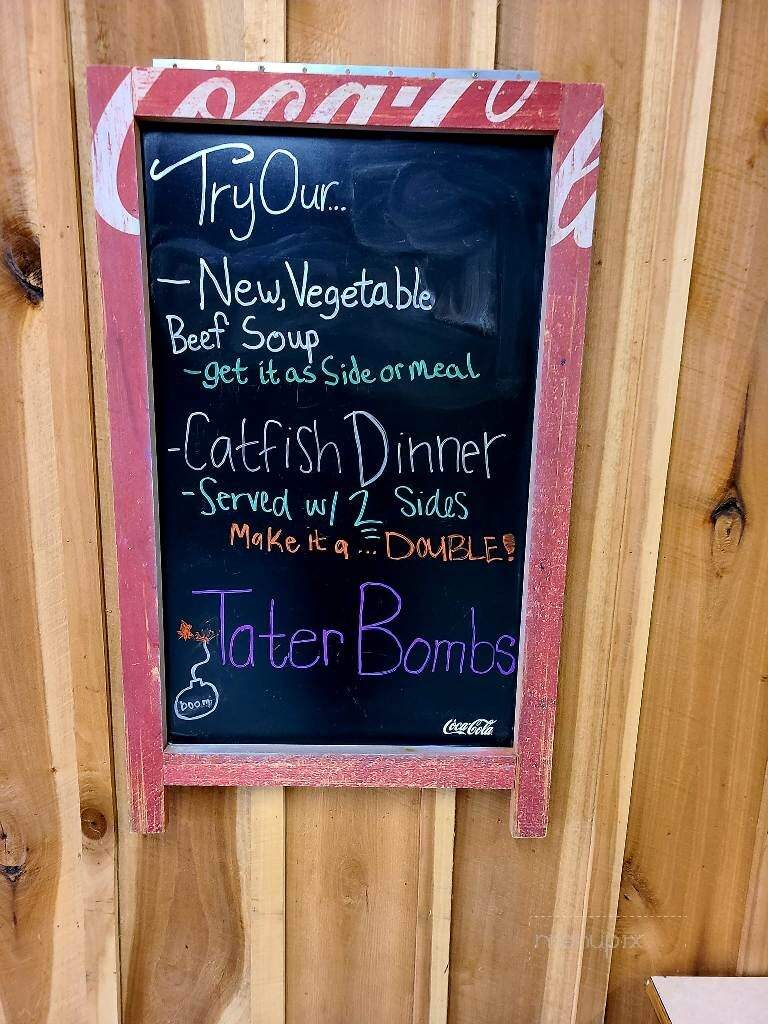 Coca-Cola
Try Our...
- New, Vegetable
Beef Soup
- get it as Side or meal
- Catfish Dinner
- Served w/ 2 Sides
Make it a ... DOUBLE!
Tater Bombs
boom
Coca-Cola
menupix